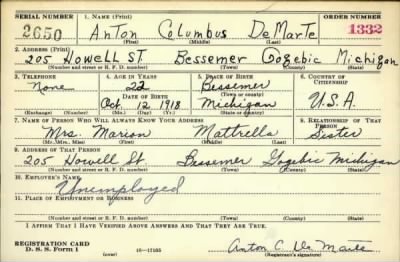 SERIAL NUMBER 1. NAME (Print) ORDER NUMBER
2650 Anton Columbus DeMarte 1332
(First) (Middle) (Last)
2. ADDRESS (Print)
205 Howell ST Bessemer Gogebic Michigan
(Number and street or R. F. D. number) (Town) (County) (State)
3. TELEPHONE 4. AGE IN YEARS 5. PLACE OF BIRTH 6. COUNTRY OF CITIZENSHIP
None 22 Bessemer
DATE OF BIRTH (Town or county)
Oct. 12 1918 Michigan U.S.A.
(Exchange) (Number) (Mo.) (Day) (Yr.) (State or country)
7. NAME OF PERSON WHO WILL ALWAYS KNOW YOUR ADDRESS 8. RELATIONSHIP OF THAT PERSON
Mrs. Marion Mattrella Sister
(Mr., Mrs., Miss) (First) (Middle) (Last)
9. ADDRESS OF THAT PERSON
205 Howell St. Bessemer Gogebic Michigan
(Number and street or R. F. D. number) (Town) (County) (State)
10. EMPLOYER'S NAME
Unemployed
11. PLACE OF EMPLOYMENT OR BUSINESS
(Number and street or R. F. D. number) (Town) (County) (State)
I AFFIRM THAT I HAVE VERIFIED ABOVE ANSWERS AND THAT THEY ARE TRUE.
REGISTRATION CARD
D. S. S. Form 1 (over) 16—17105 Anton C. De Marte
(Registrant's signature)